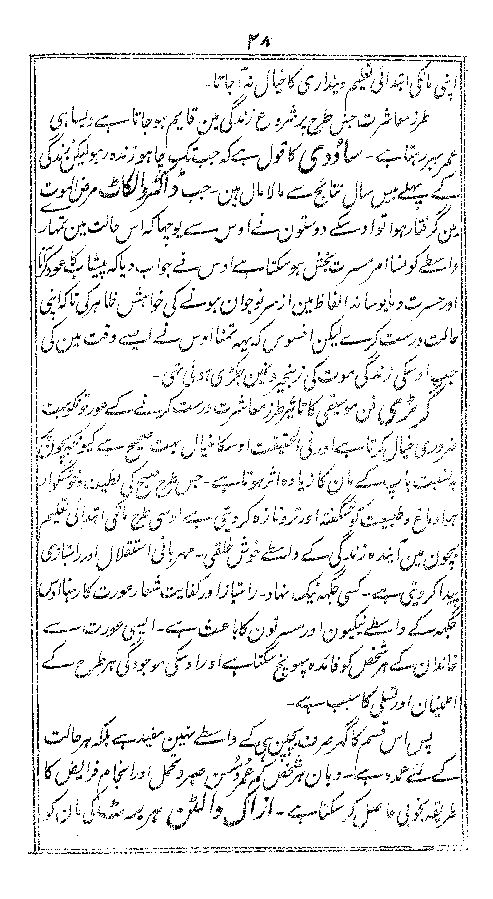 ۳۸
اپنی مانکی ابتدائی تعلیم دینداری کا خیال نہ آجاتا۔
طرز معاشرت جس طرح پر شروع زندگی مین قایم ہو جاتا ہے ویسا ہی
عمر بھر رہتا ہے۔ ساؤدی کا قول ہے کہ جب تک چاہو زندہ رہو لیکن زندگی
کے پہلے بیس سال نتایج سے مالا مال ہین۔ جب ڈاکٹر والکاٹ مرض الموت
مین گرفتار ہوا تو اوسکے دوستون نے اوس سے پوچھا کہ اس حالت مین تمہارے
واسطے کونسا امر مسرت بخش ہو سکتا ہے اوس نے جواب دیا کہ شباب کا عود کرنا
اور حسرت و مایوسانہ الفاظ مین از سر نو جوان ہونے کی خواہش ظاہر کی تاکہ اپنی
حالت درست کرے لیکن افسوس کہ یہہ تمنا اوس نے ایسے وقت مین کی
جب اوسکی زندگی موت کی زنجیرونمین جکڑی ہوئی تھی۔
گرٹری فن موسیقی کا تاثیر طرز معاشرت درست کرنے کے عورتونکو بہت
ضروری خیال کرتا ہے اور فی الحقیقت اوسکا خیال بہت صحیح ہے کیونکہ بچون پر
بہ نسبت باپ کے مان کا زیادہ اثر ہوتا ہے۔ جس طرح صبح کی لطیف و خوشگوار
ہوا دماغ و طبیعت کو شگفتہ اور تروتازہ کر دیتی ہے اوسی طرح مانکی ابتدائی تعلیم
بچون مین آیندہ زندگی کے واسطے خوش خلقی۔ مہربانی استقلال اور راستبازی
پیدا کر دیتی ہے۔ کسی جگہہ نیک نہاد۔ راستباز اور کفایت شعار عورت کا رہنا اوس
جگہہ کے واسطے نیکیون اور مسرتون کا باعث ہے۔ ایسی عورت سے
خاندان کے ہر شخص کو فائدہ پہونچ سکتا ہے اور اوسکی موجودگی ہر طرح کے
اطمینان اور تسلی کا سبب ہے۔
پس اس قسم کا گھر صرف بچپن ہی کے واسطے نہین مفید ہے بلکہ ہر حالت
کے لئے عمدہ ہے۔ وہان ہر شخص کو صبر و تحمل اور انجام فرایض کا
طریقہ بخوبی حاصل کر سکتا ہے۔ ازاک والٹن کی مان کو